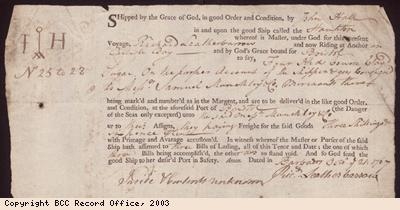 SHipped by the Grace of God, in good Order and Condition, by John Hall
in and upon the good Ship called the Hamilton
whereof is Master, under God for this present
Voyage, and now Riding at Anchor
Bay and by God's Grace bound for Bristol
to say, Four Hhd
Sugar, On the proper Account of the Shipper & goes Consigned
to Mess. Samuel Munckley & Co. Merchants there
being mark'd and number'd as in the Margent, and are to be deliver'd in the like good Order,
and Condition, at the aforesaid Port of Bristol (the Danger
of the Seas only excepted) unto the said Munckley & Co.
or to their Assigns, they paying Freight for the said Goods Three Shillings
with Primage and Average accustom'd. In witness whereof the Master or Purser of the said
Ship hath affirmed to Three Bills of Lading, all of this Tenor and Date; the one of which
Three Bills being accomplish'd, the other two to stand void. And so God send the
good Ship to her desir'd Port in Safety. Amen. Dated in Barbados
Inside & Contents unknown
I H
N 25 to 28
Copyright BCC Record Office, 2003